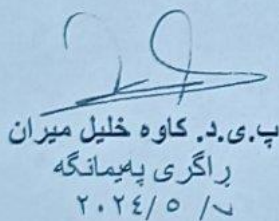 پ.ی.د. کاوه خلیل میران
ڕاگری پەیمانگە
٢٠٢٤/ ٥ /٧